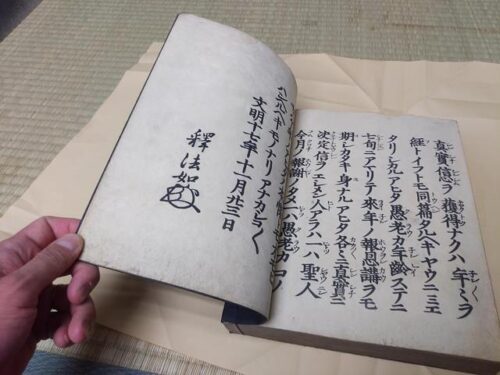 真實信心ヲ獲得ナクハ年ミヲ
經トイフトモ同篇タルヘキヤウニミエ
タリシカルアヒタ愚老カ年齡ステニ
七旬ニアマリテ來年ノ報恩講ヲモ
期シカタキ身ナルアヒタ各ミ真實ニ
決定信ヲエシメン人アラハ一ハ聖人
今月ノ報謝ノタメ一ハ愚老カコノ
ヘキモノナリアナカシコ〱
文明十七年十一月廿三日
釋法如